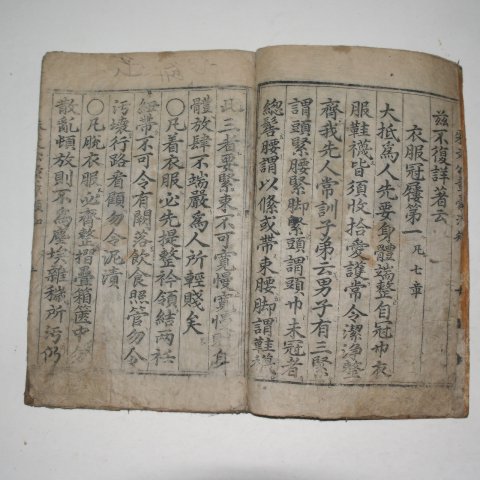 兹不復詳著云
衣服冠屨第一 凡七章
大抵爲人先要身體端整自冠巾衣
服鞋襪皆須收拾愛護常令潔淨整
齊我先人常訓子弟云男子有三緊
謂頭緊腰緊脚緊頭謂頭巾未冠者
總髻腰謂以絛或帶束腰脚謂鞋襪
此三者要緊束不可寬慢寬慢則身
體放肆不端嚴爲人所輕賤矣
○凡着衣服必先提整衿領結兩袵
紐帶不可令有闕落飮食照管勿令
汚壞行路看顧勿令泥漬
○凡脫衣服必齊整摺疊箱篋中勿
散亂頓放則不爲塵埃雜穢所汚仍